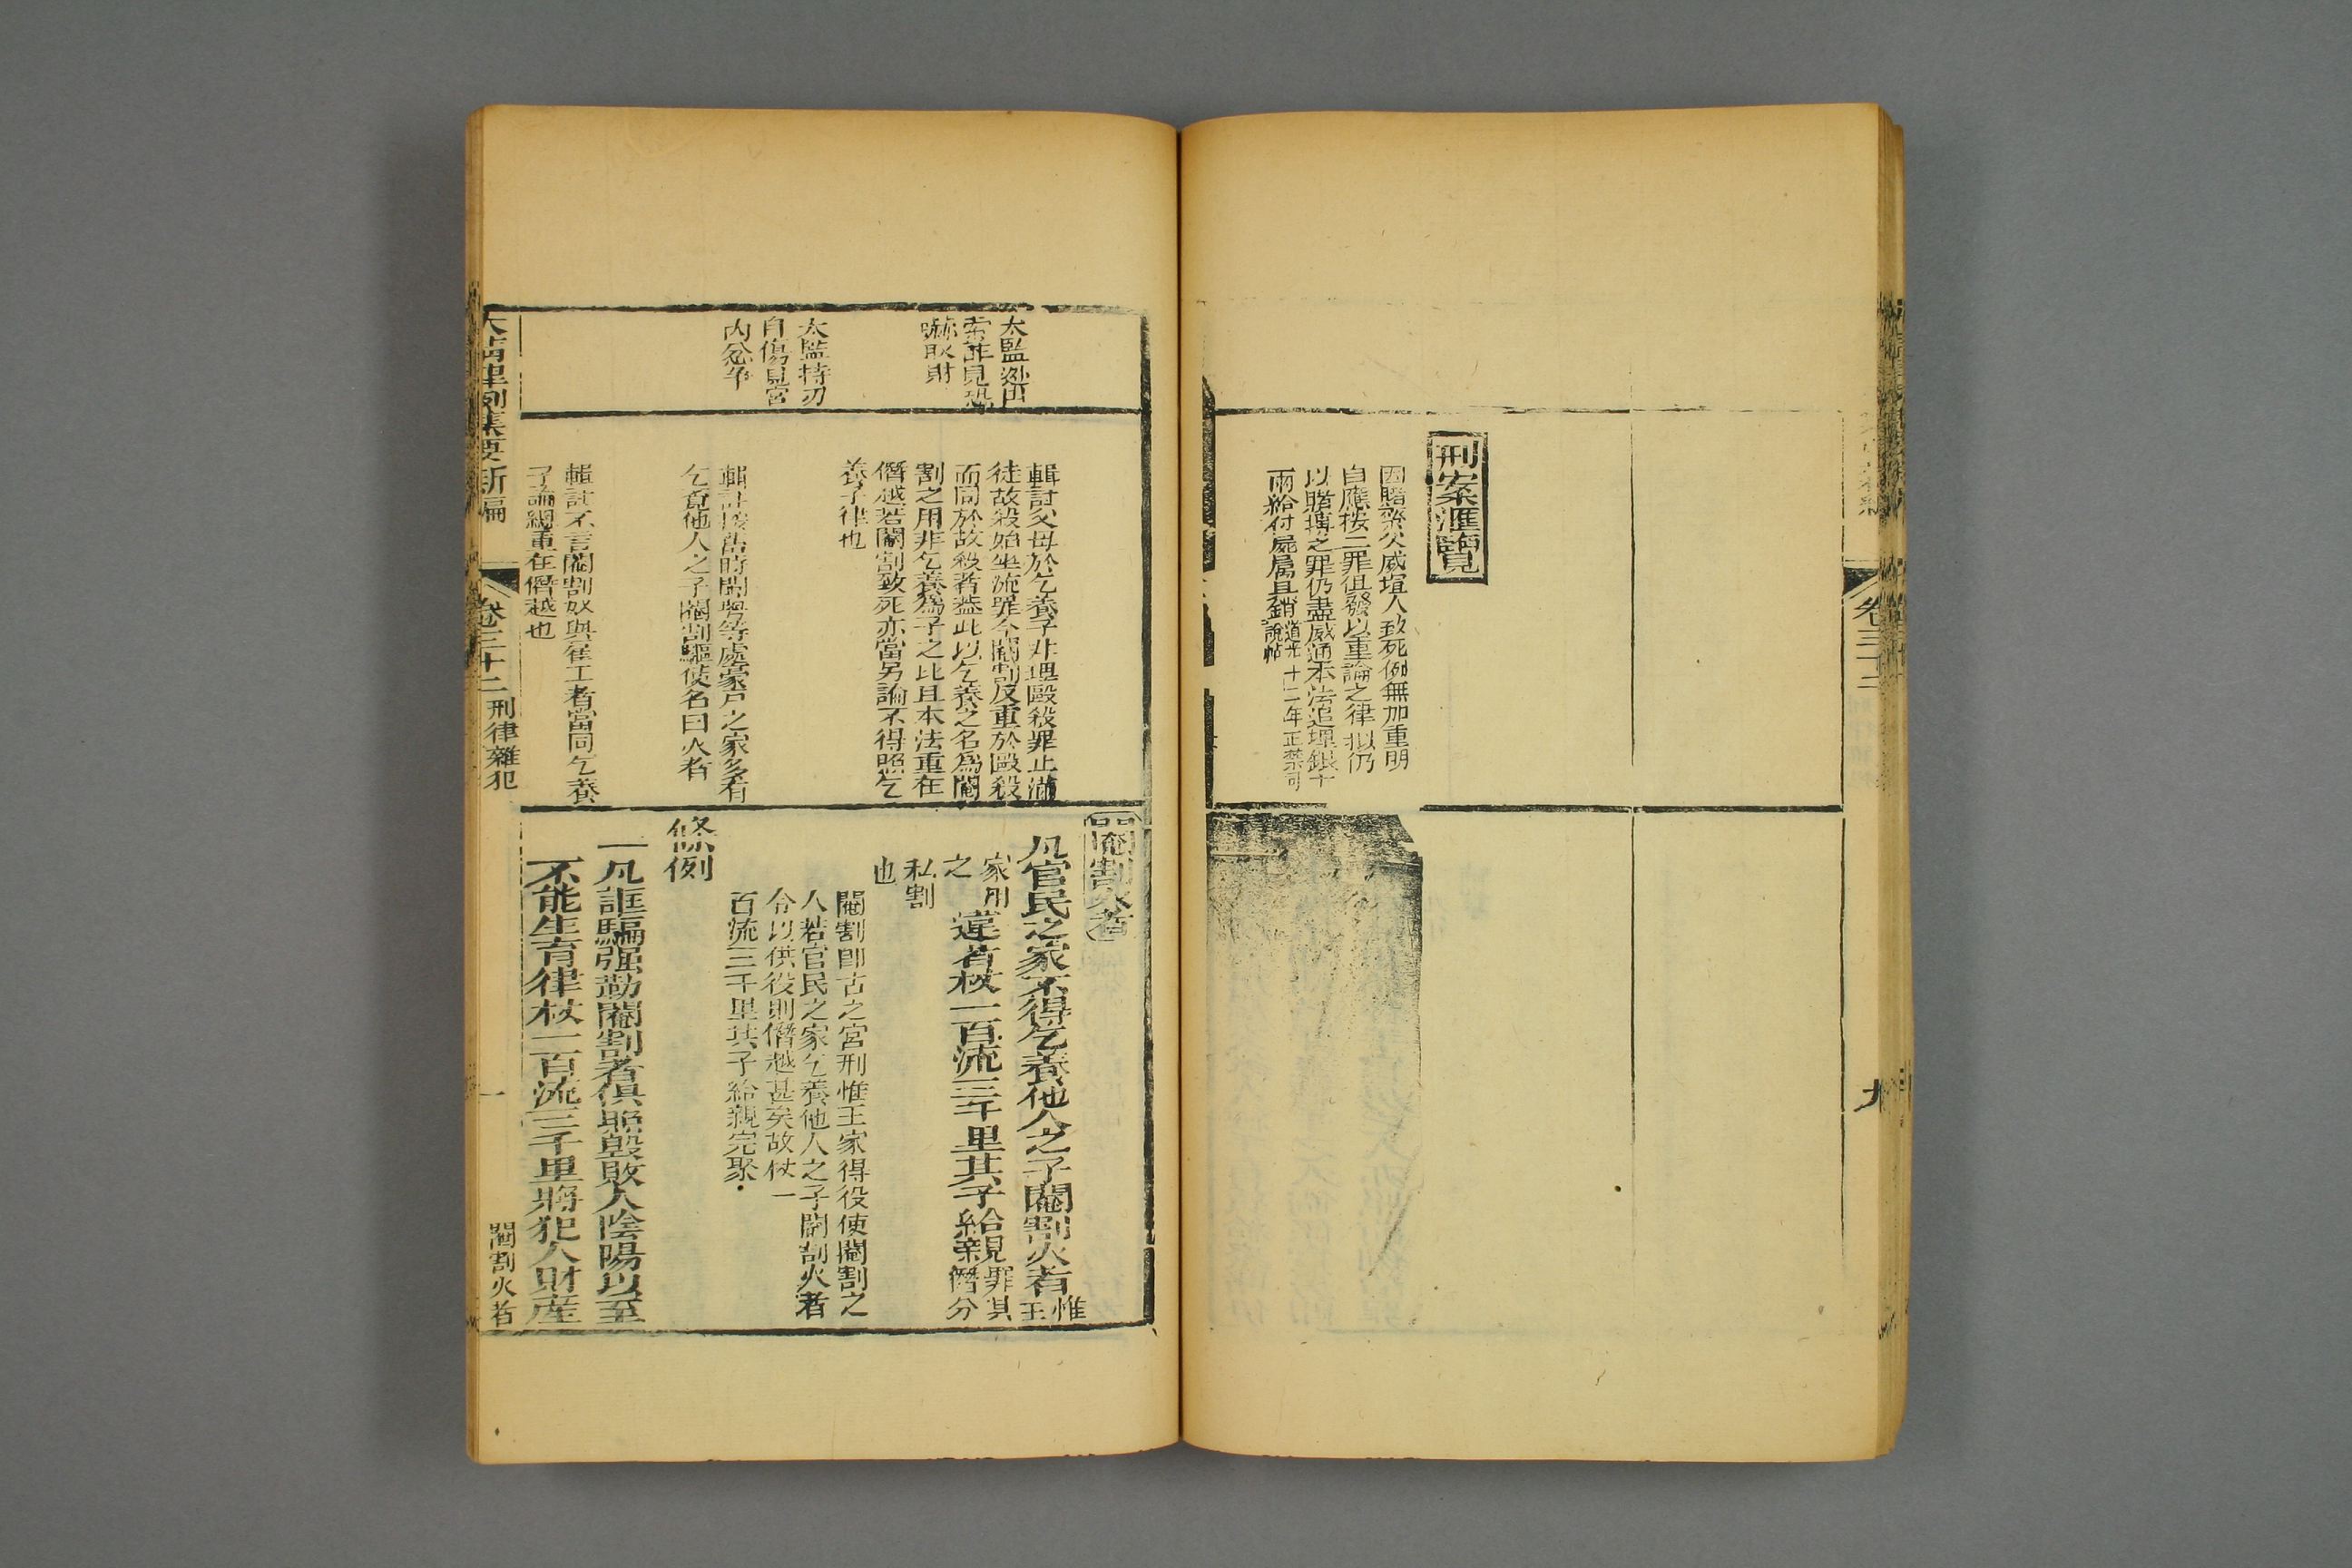 卷三十二
九
刑案滙覽
因賭柴欠威逼人致死例無加重明
自應按二罪俱發以重論之律擬仍
以賭塲之罪仍盡威逼本法追埋銀十
兩給付屍屬具銷道光十二年
說帖
閹割火者
凡官民之家不得乞養他人之子閹割火者惟王
家用之違者杖一百流三千里其子給親罪其僭分
私割
也
閹割卽古之宮刑惟王家得役使閹割之
人若官民之家乞養他人之子閹割火者
令以供役則僭越甚矣故杖一
百流三千里其子給親完聚
條例
一凡誆騙强勒閹割者俱照毁敗人陰陽以至
不能生育律杖一百流三千里將犯人財產
輯註父母於乞養子非理毆殺罪止滿
徒故殺始坐流罪今閹割反重於毆殺
而同於故殺者葢此以乞養之名爲閹
割之用非乞養爲子之比且本法重在
僭越若閹割致死亦當另論不得照乞
養子律也
輯註閩粤等處豪戶之家多有
乞覔他人之子閹割驅使名曰火者
輯註不言閹割奴與雇工者當同乞養
子論緦重在僭越也
太監逃出
索詐見恐
嚇取財
太監持刃
自傷見宮
內忿爭
大清律例集要新編
卷三十二
刑律雜犯
一
閹割火者